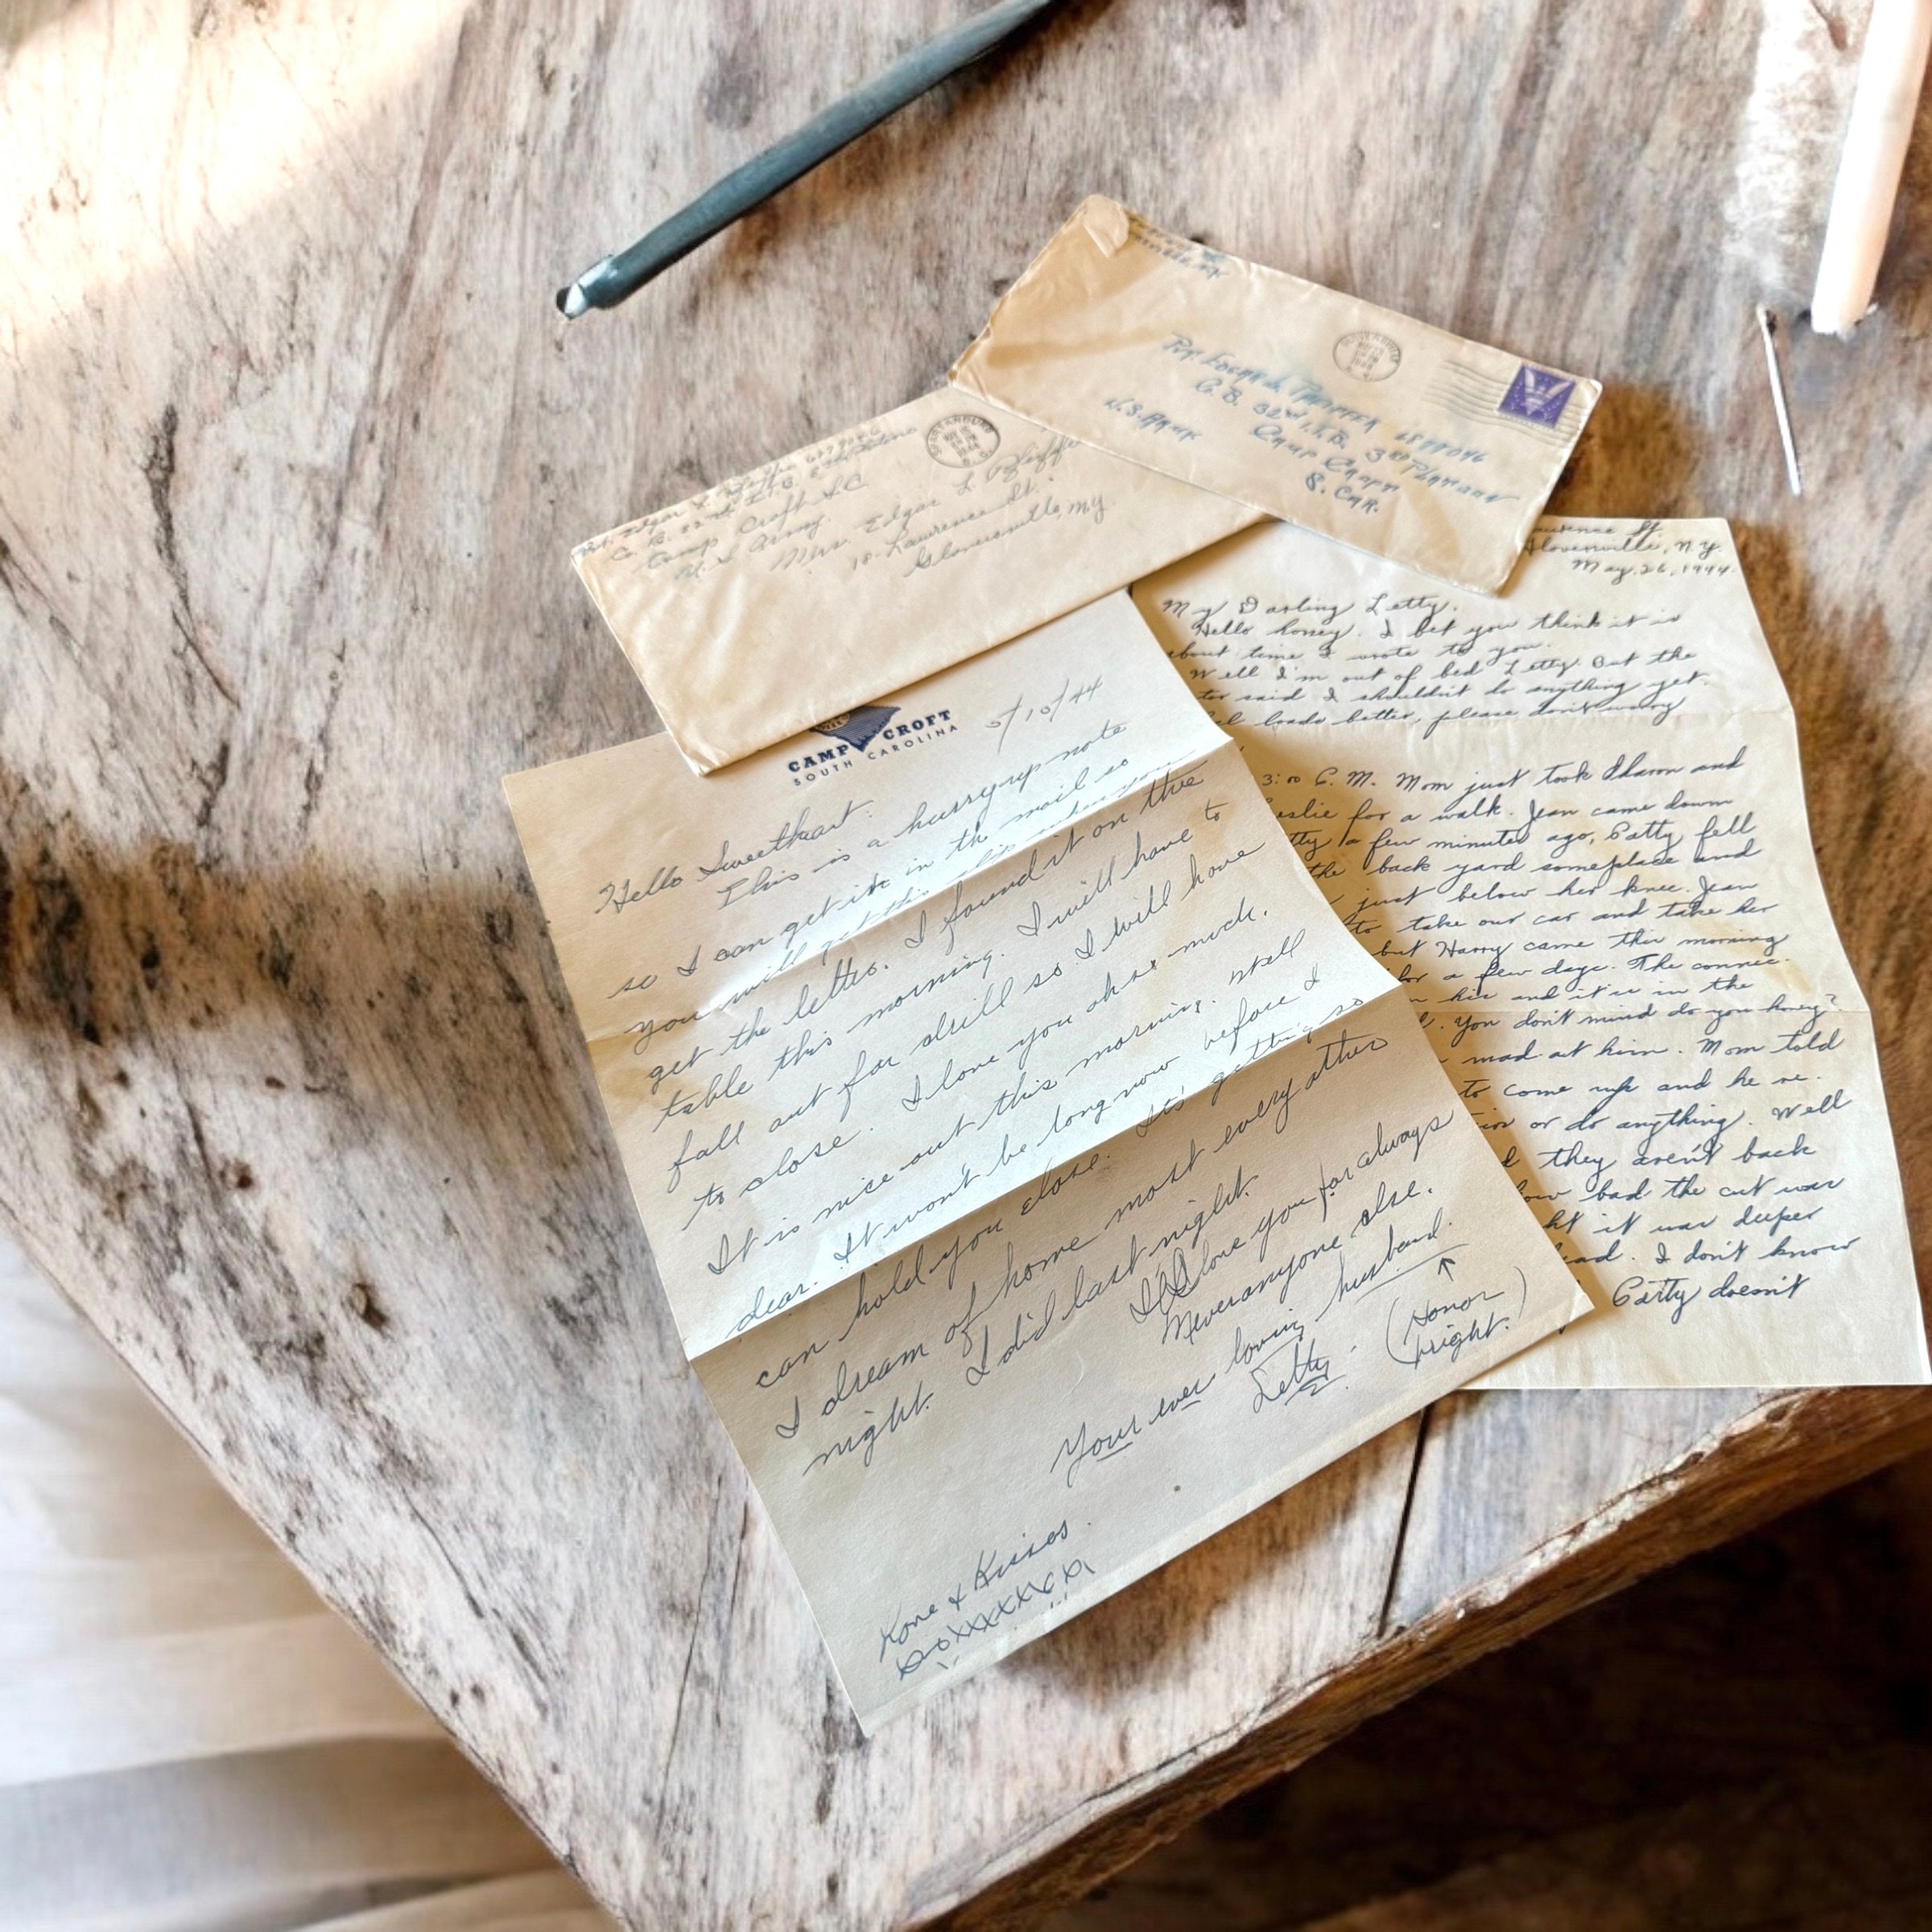 Camp Croft S.C.
U.S. Army.
Mrs. Edgar L Pfeiffer
Lawrence St.
Gloversville, N.Y.
SPARTANBURG
1944
S.C.
Pvt. Edgar L Pfeiffer
Co. B. 32nd I.T.B. 3rd Platoon
Camp Croft
S. Car.
U.S. Army
1944
CAMP CROFT
SOUTH CAROLINA
5/10/44
Hello Sweetheart:
This is a hurry up note
so I can get it in the mail so
you will get this
get the letter. I found it on the
table this morning. I will have to
fall out for drill so I will have
to close. I love you oh so much.
It is nice out this morning. Well
dear. It won't be long now before I
can hold you close. It's getting so
I dream of home most every other
night. I did last night.
I'll love you for always
Never anyone else.
Your ever loving husband.
Letty.
(Honor
bright.)
& Kisses
St
Gloversville, N.Y.
May. 26, 1944.
My Darling Letty.
Hello honey. I bet you think it is
about time I wrote to you.
Well I'm out of bed Letty. But the
said I shouldn't do anything yet.
loads better, please don't worry
3:00 P.M. Mom just took Sharon and
for a walk. Jean came down
a few minutes ago, Patty fell
the back yard someplace and
just below her knee. Jean
to take our car and take her
but Harry came this morning
for a few days. The connec-
his and it is in the
You don't mind do you honey?
mad at him. Mom told
to come up and he re-
or do anything. Well
they aren't back
how bad the cut was
it was deeper
I don't know
Patty doesn't